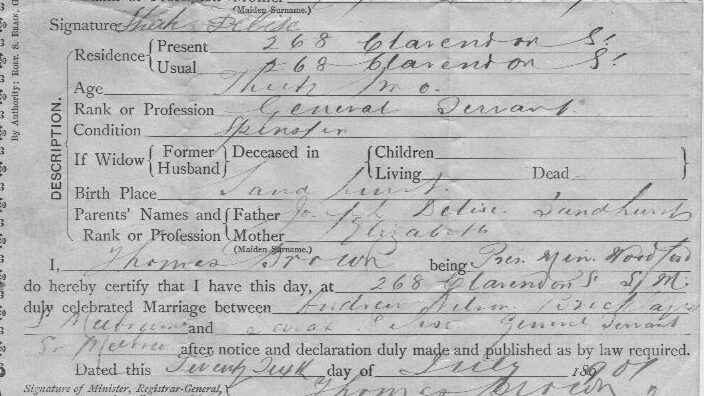 (Maiden Surname.)
Signature Sarah Delise
DESCRIPTION.
Residence { Present 268 Clarendon St
Usual 268 Clarendon St
Age Thirty two
Rank or Profession General Servant
Condition Spinster
If Widow { Former Husband } Deceased in { Children
Living Dead
Birth Place Sandhurst
Parents' Names and { Father Joseph Delise Sandhurst
Rank or Profession { Mother Elizabeth
(Maiden Surname.)
I, Thomas Brown being Pres. Min. Woodford
do hereby certify that I have this day, at 268 Clarendon St S/M.
duly celebrated Marriage between Andrew
Melbourne and Sarah Delise General Servant
So Melb after notice and declaration duly made and published as by law required.
Dated this day of July 1901
Signature of Minister, Registrar-General, Thomas Brown
By Authority: ROBT. S. BRAIN,